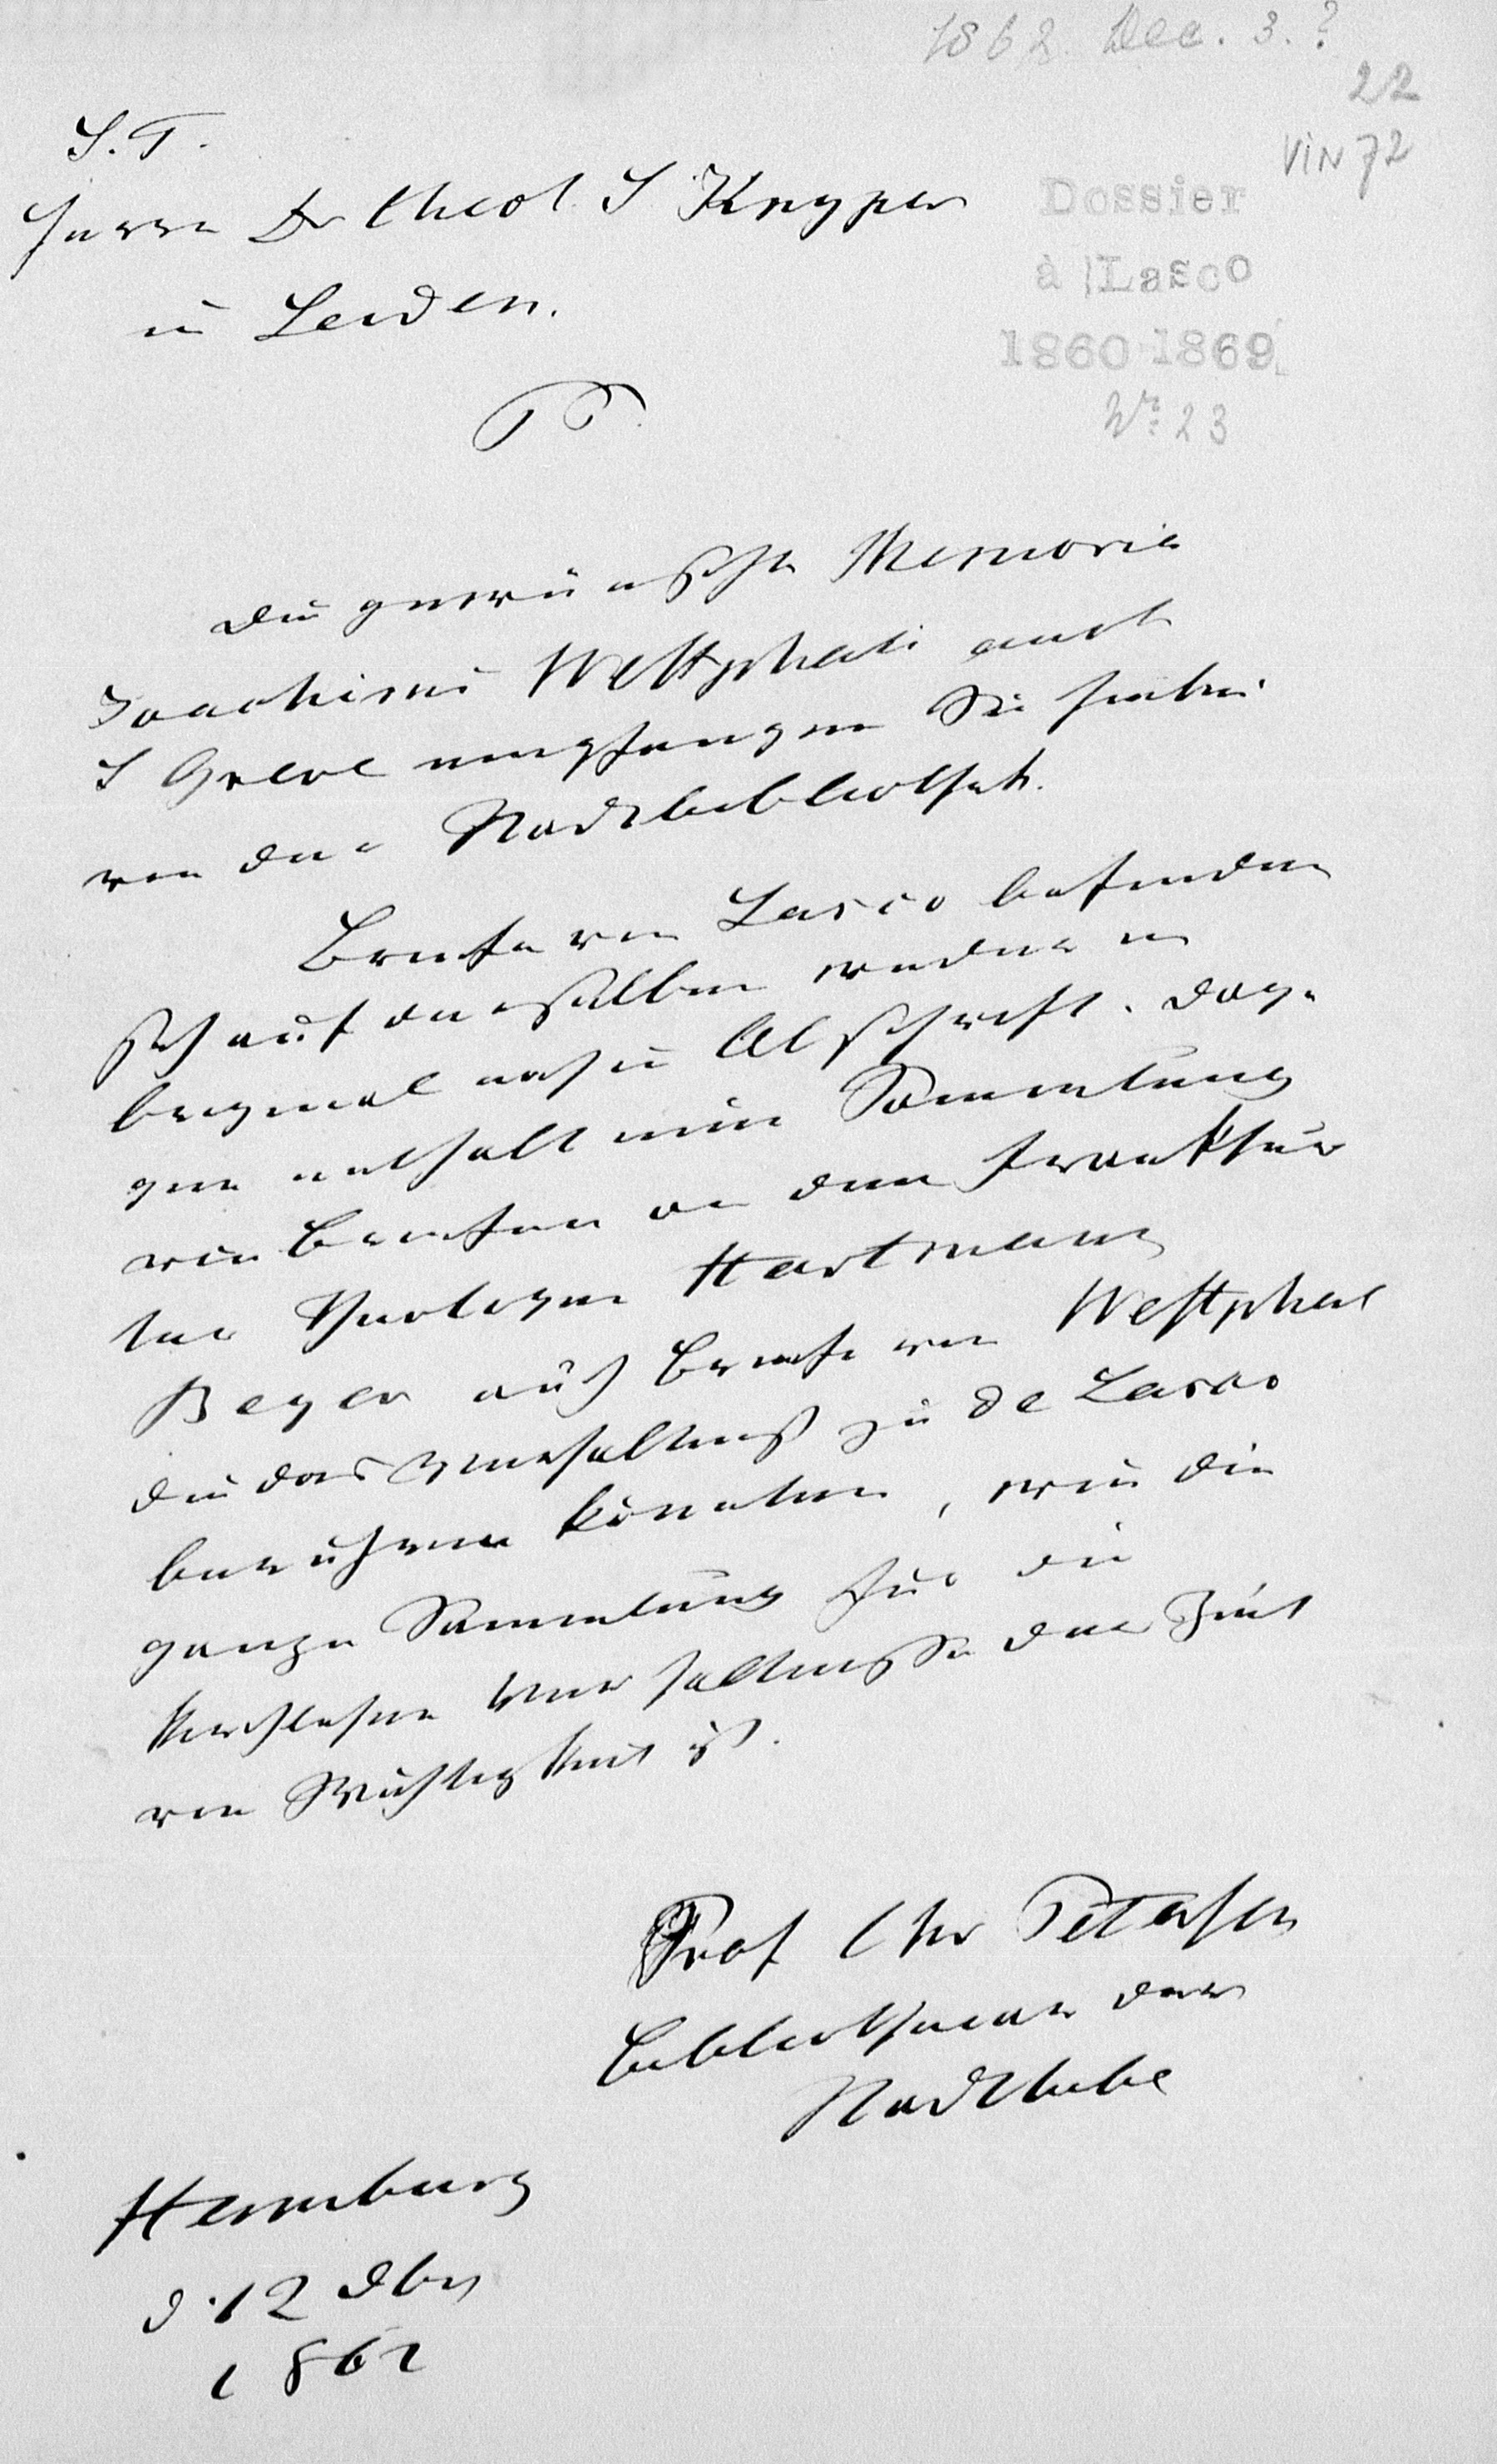 1862 Dec. 3.?
22
VIN 72
S. T.
Herrn Dr theol. S Kuyper
in Leiden.
Dossier
à Lasco
1860 1869
No: 23
PP.
Die gewünschte Memoria
Joachimi Westphali auct
S Greve empfangen Sie hiebei
von der Stadtbibliothek.
Briefe von Lasco befinden
sich auf derselben weder im
Original noch in Abschrift. Dage
gen enthält eine Sammlung
von Briefen an den Frankfur
ter Theologen Hartmann
Beyer auch Briefe von Westphal
die das Verhältniß zu de Lasco
berühren könnten, wie die
ganze Sammlung für die
kirchlichen Verhältnisse der Zeit
von Wichtigkeit ist.
Prof Chr Petersen
Bibliothekar der
Stadtbibl
Hamburg
d. 12 Dbr
1862